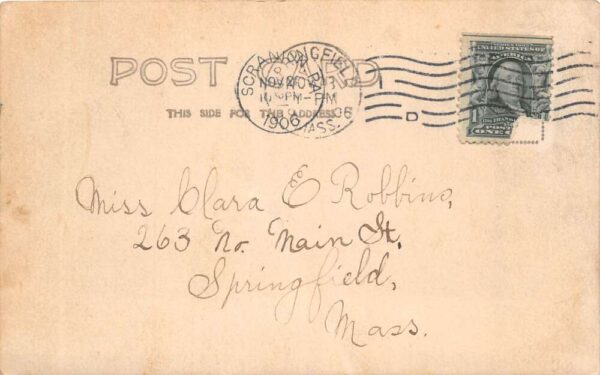 POST CARD
THIS SIDE FOR THE ADDRESS
SCRANTON
PA.
1906
MASS.
D
UNITED STATES OF
AMERICA
1
POST
ONE
Miss Clara E Robbins,
263 No. Main St.
Springfield,
Mass.